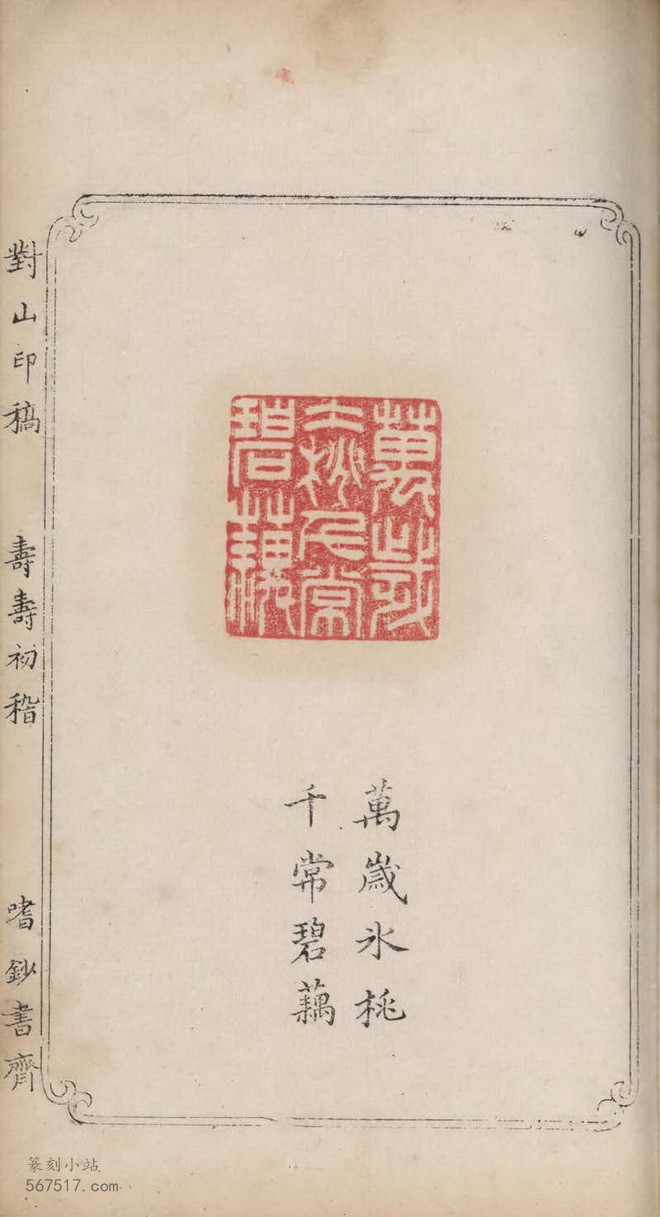 萬歲
冰桃千常
碧藕
萬歲氷桃
千常碧藕
對山印稿 壽壽初稽 嗜鈔書齊
篆刻小站
567517.com